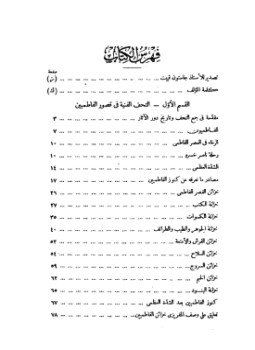 فهرس الكتاب
صفحة
تصدير للأستاذ جاستون فييت (م)
كلمة المؤلف (ك)
القسم الأول — التحف الفنية فى قصور الفاطميين
مقدمة فى جمع التحف وتاريخ دور الآثار ٣
الفاطميون ٧
الرخاء فى العصر الفاطمى ١٠
رحلة ناصر خسرو ١٠
الشدة العظمى ١٢
مصادر ما نعرفه عن كنوز الفاطميين ١٧
خزائن القصر الفاطمى ٢١
خزانة الكتب ٢٧
خزانة الكسوات ٣٥
خزانة الجوهر والطيب والطرائف ٤٠
خزائن الفرش والأمتعة ٥٢
خزائن السلاح ٥٤
خزائن السروج ٥٩
خزائن الخيم ٦٢
خزانة البنود ٦٥
كنوز الفاطميين بعد الشدة العظمى ٦٧
تعليق على وصف المقريزى خزائن الفاطميين ٦٨